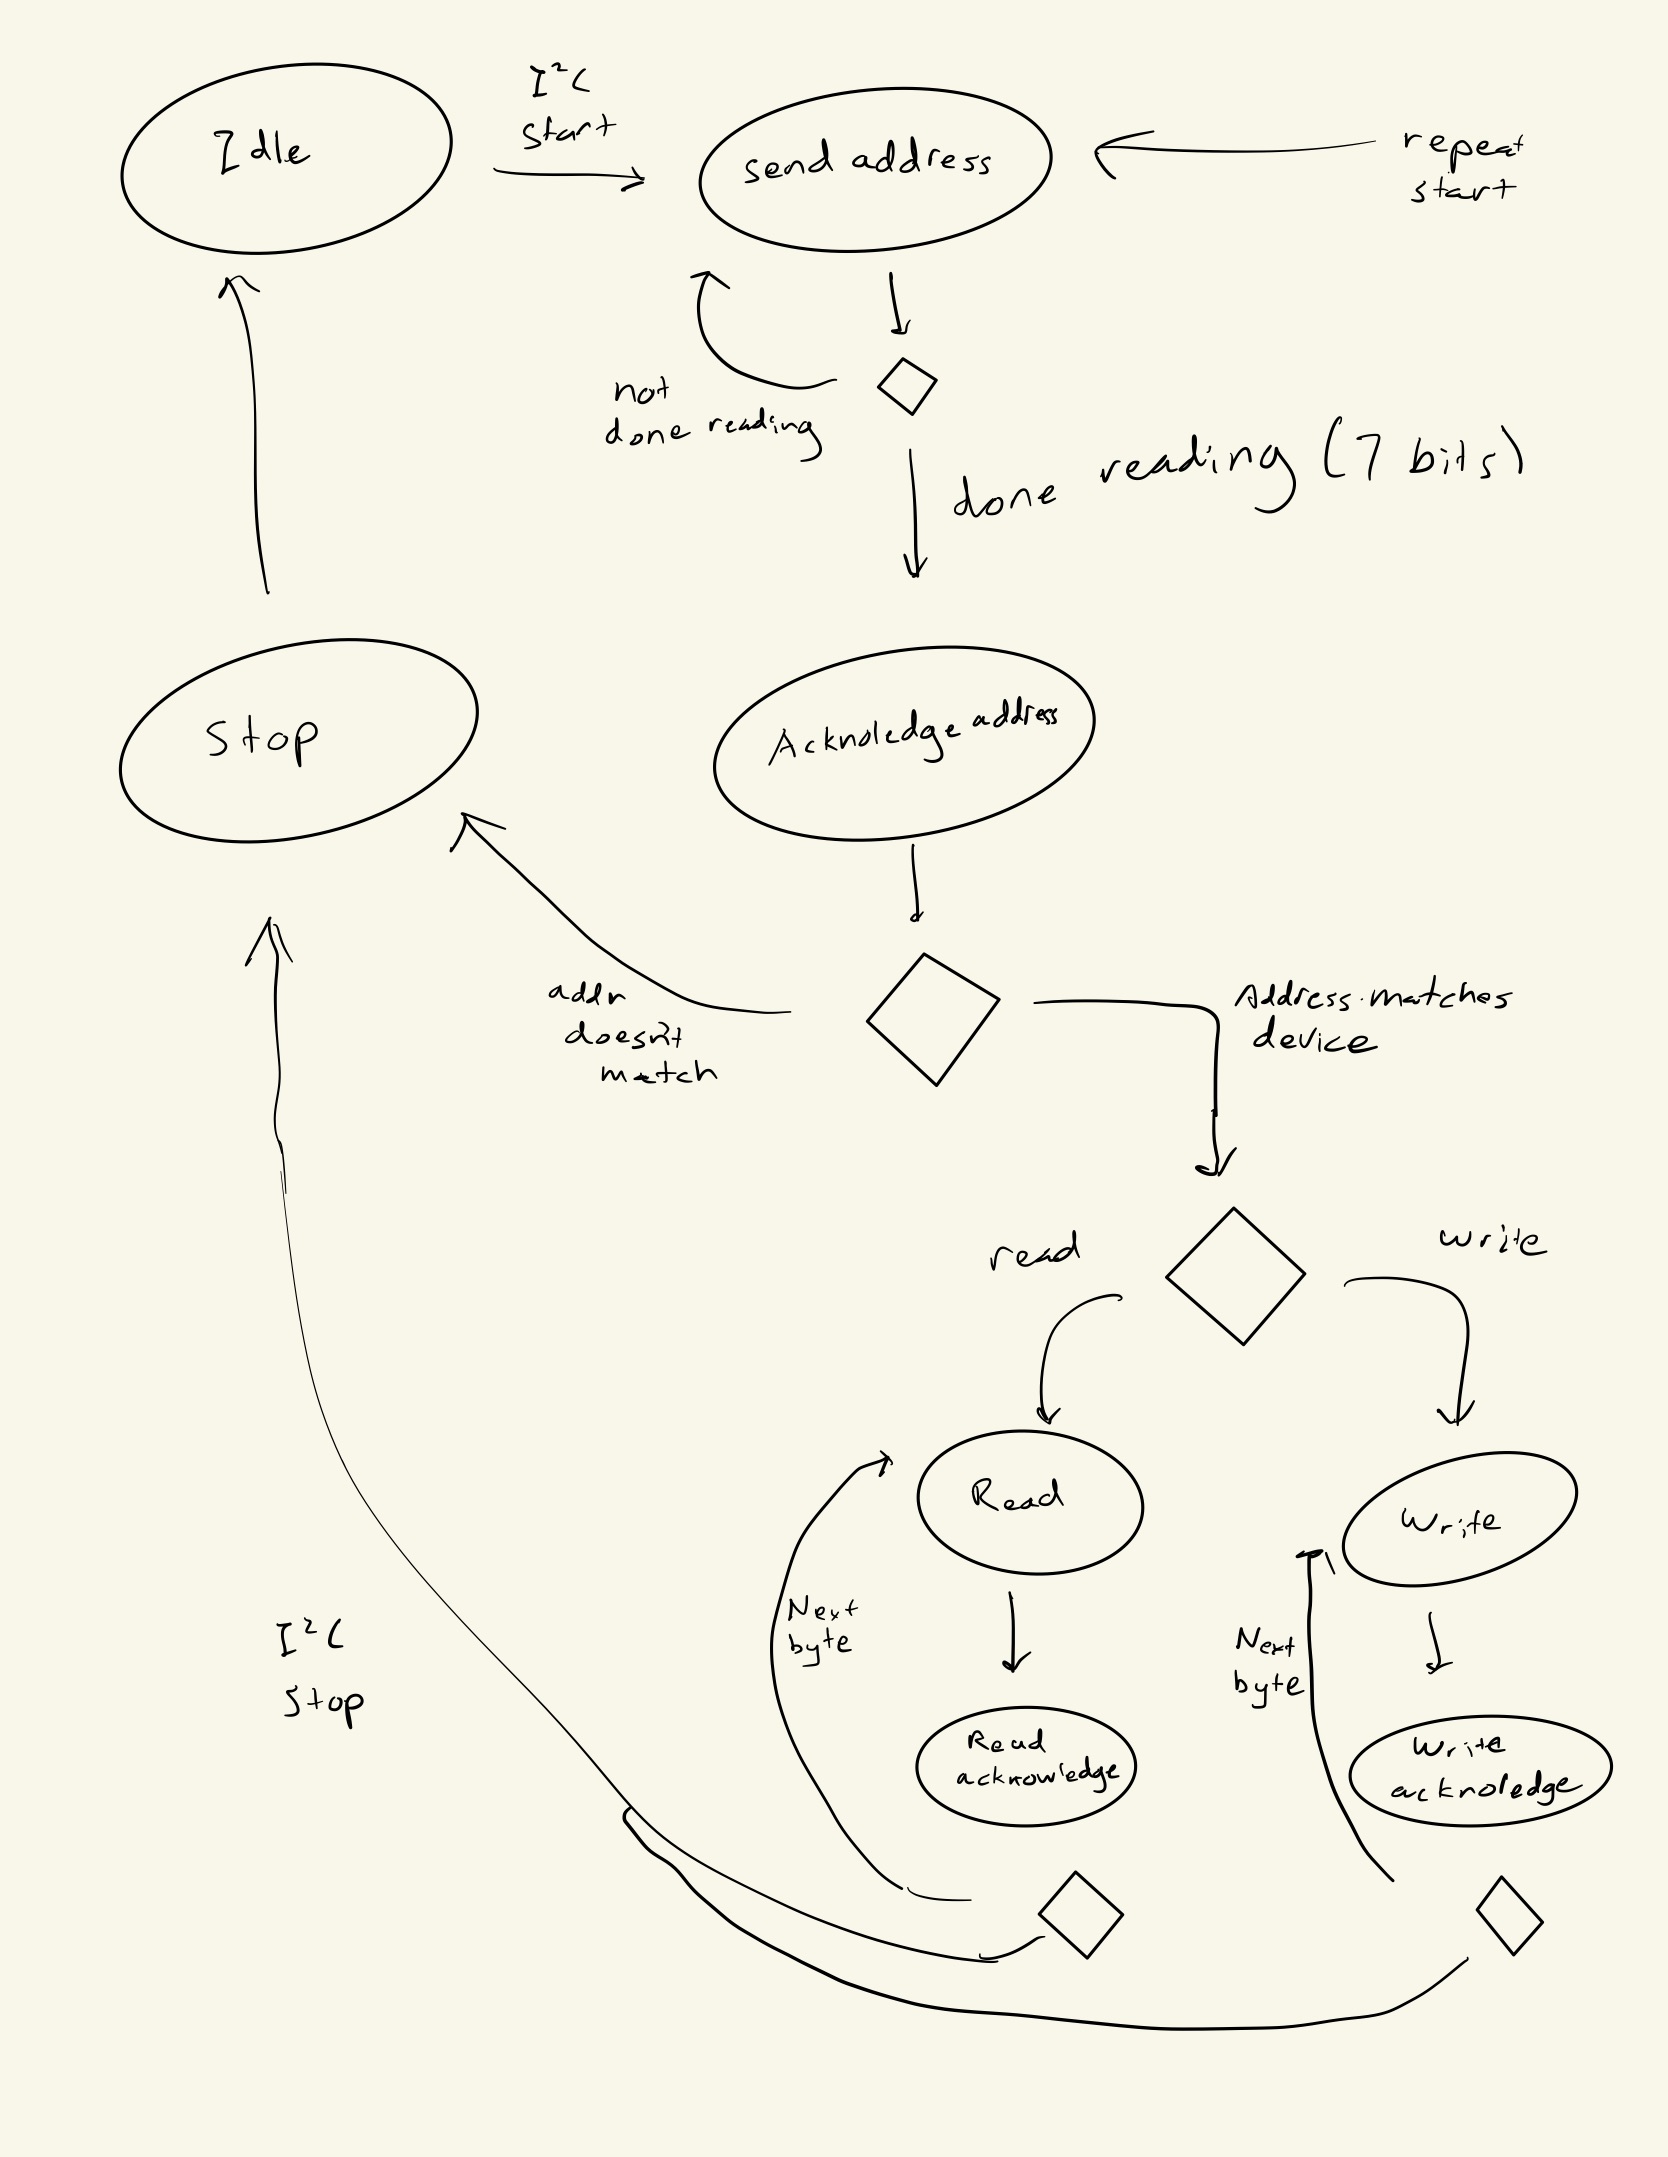 Idle
I²C
Start
send address
repeat
start
not
done reading
done reading (7 bits)
Stop
Acknoledge address
addr
doesn't
match
Address matches
device
read
write
Read
Write
Next
byte
Next
byte
I²C
Stop
Read
acknowledge
Write
acknoledge